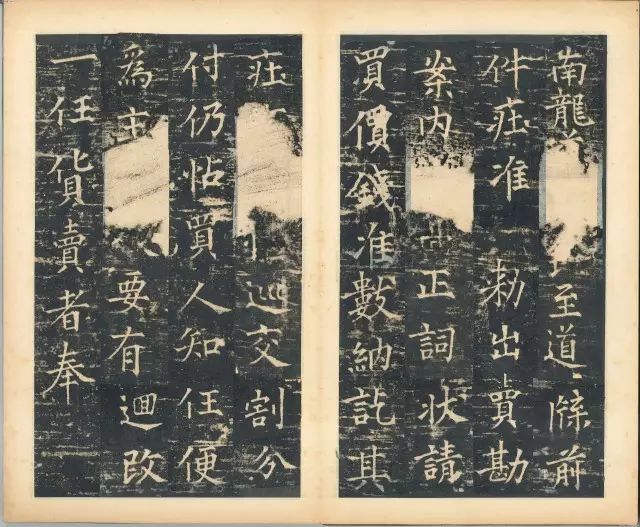 南龍至道牒前
件庄准勅出賣勘
案内正詞狀請
買價錢准數納訖其
庄巡交割分
付仍帖買人知任便
為主要有迴改
一任貨賣者奉